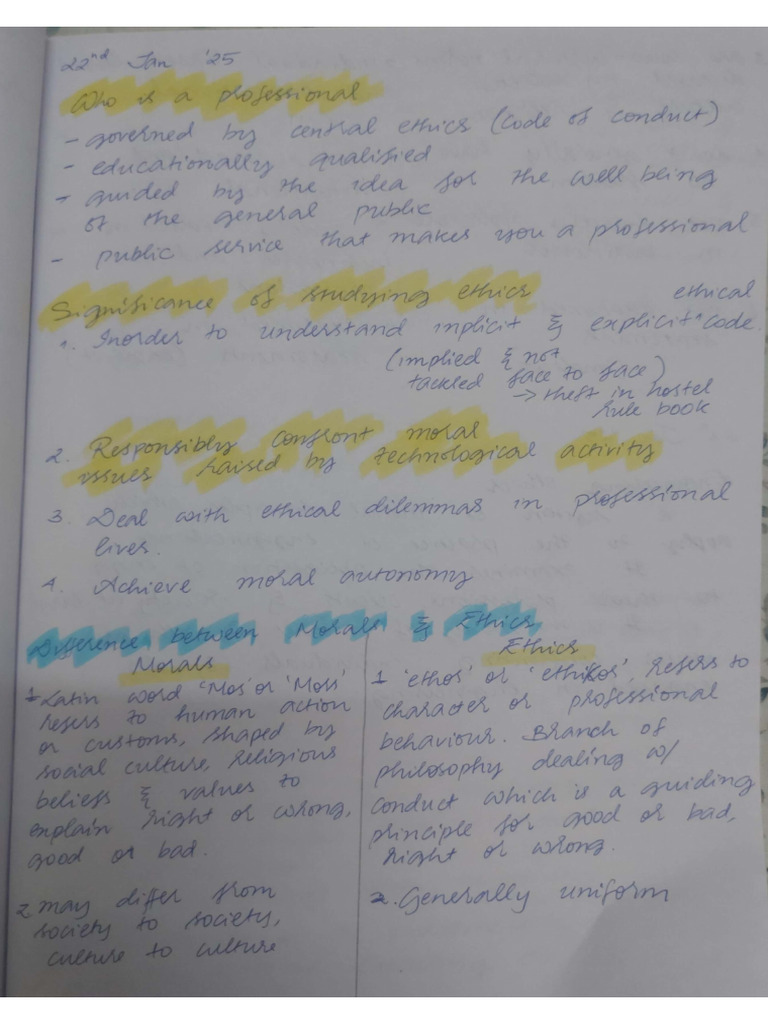 22nd Jan '25
Who is a professional
- governed by central ethics (code of conduct)
- educationally qualified
- guided by the idea for the well being
of the general public
- public service that makes you a professional
Significance of studying ethics
1. Inorder to understand implicit & explicit ethical code.
(implied & not
tackled face to face)
→ theft in hostel
rule book
2. Responsibly confront moral
issues raised by technological activity
3. Deal with ethical dilemmas in professional
lives.
4. Achieve moral autonomy
Difference between Morals & Ethics
Morals
1 Latin word 'Mos' or 'Moss'
refers to human action
or customs, shaped by
social culture, religious
beliefs & values to
explain right or wrong,
good or bad.
2 may differ from
society to society,
culture to culture
Ethics
1 'ethos' or 'ethikos', refers to
character or professional
behaviour. Branch of
philosophy dealing w/
conduct which is a guiding
principle for good or bad,
right or wrong.
2. Generally uniform